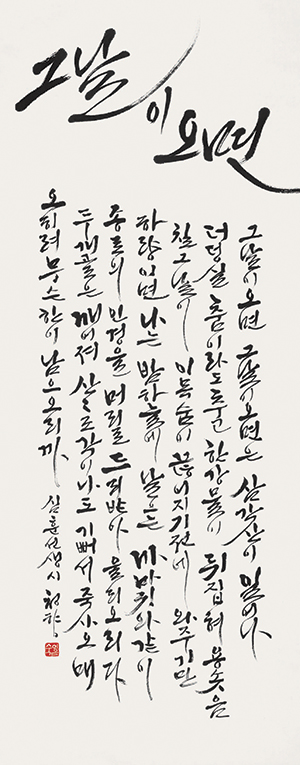 그날이 오면
그날이 오면 그날이 오면은 삼각산이 일어나
더덩실 춤이라도 추고 한강물이 뒤집혀 용솟음
칠 그날이 이 목숨이 끊어지기 전에 와주기만
하량이면 나는 밤하늘에 날으는 까마귀와 같이
종로의 인경을 머리로 드리받아 울리오리다
두개골은 깨어져 산산조각이 나도 기뻐서 죽사오매
오히려 무슨 한이 남으오리까 심훈선생 시